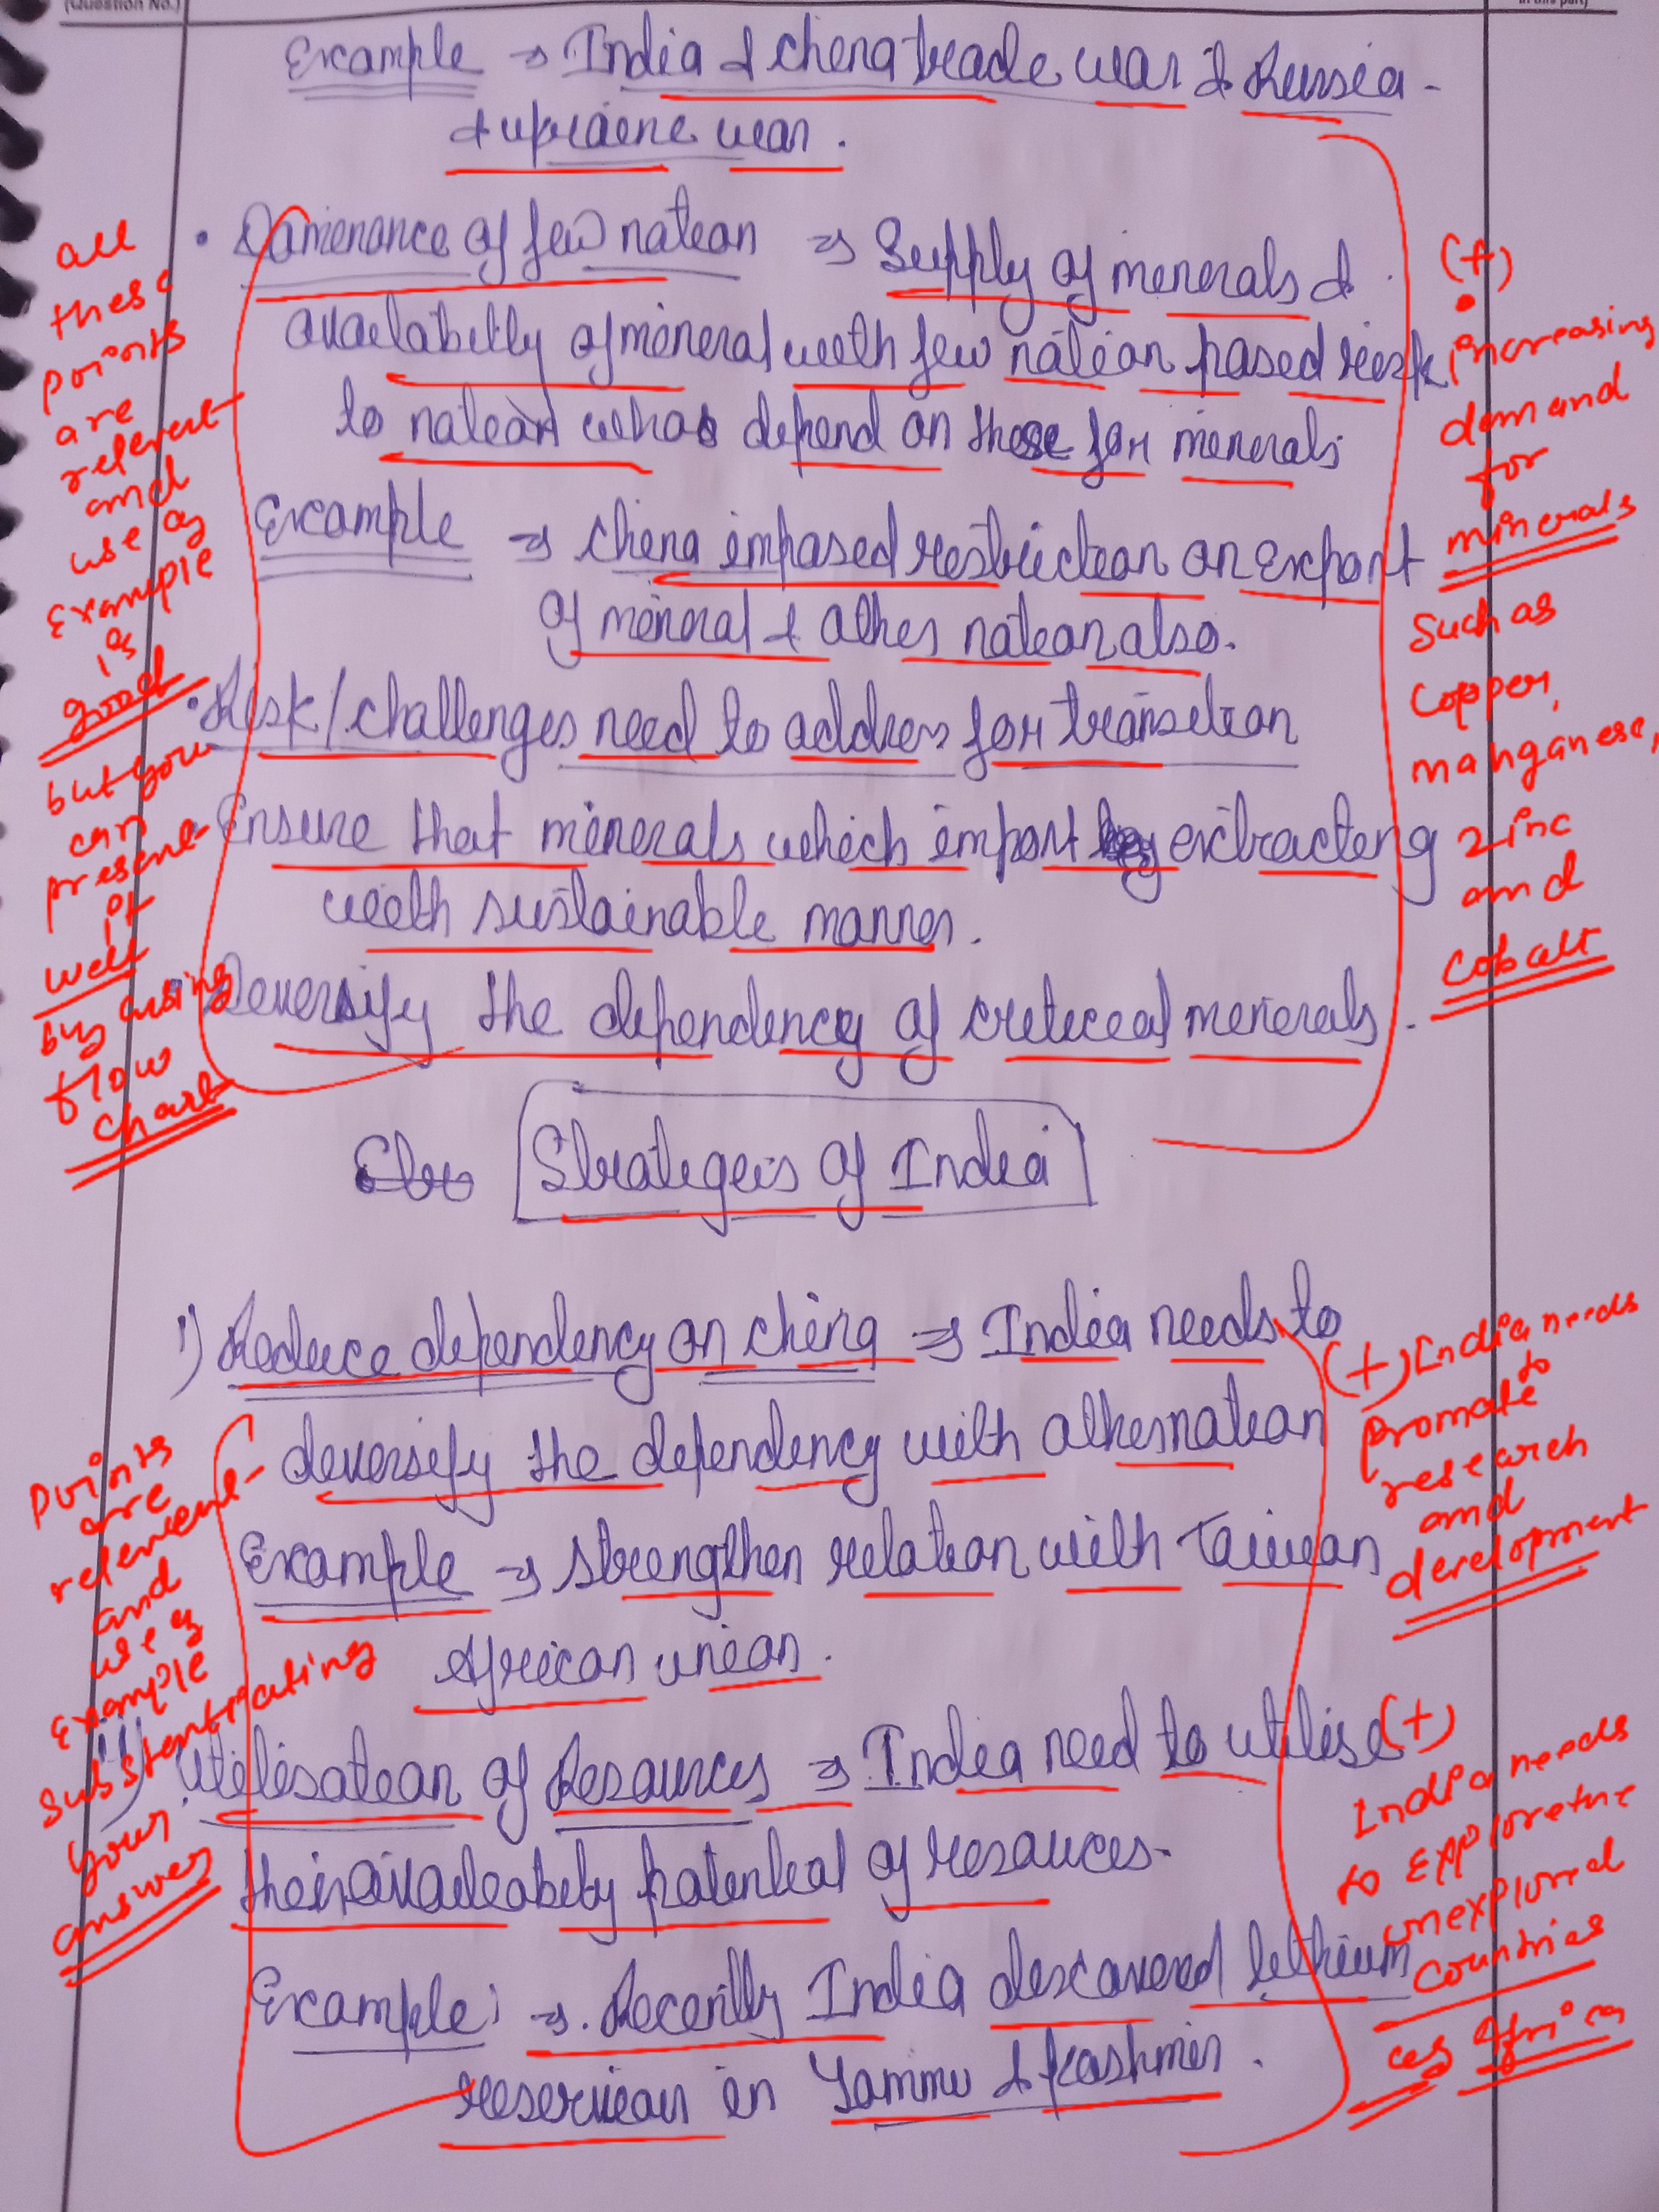 (Question No.)
in this part)
Example ⇒ India & chena trade war & Russia -
& upraene war.
• Domenance of few natean ⇒ Supply of menerals &
availabelly of meneral weeth few natean pased resk
to natean whos depend on those for menerals
Example ⇒ chena empased restrictean on Export
of meneral & alhes natean also.
• Risk/challenges need to address for transetean
• Ensure that menerals which empart by extracteng
weeth sustainable manner.
• Deversify the dependency of creteceal menerals.
Strategeis of Indea
i) Reduce dependency on chena ⇒ Indea needs to
deversefy the dependency with alhesnatean
Example ⇒ strengthen relatean with Taiwan
African unean.
ii) Utelesatean of Resources ⇒ Indea need to utelise
their availeabelety patenteal of resources.
Example: ⇒. Recently India descavered lethium
reserviear in Jammu & Kashmir.
all
these
points
are
relevent
and
use of
Example
is
good
but you
can
present
it
well
by using
flow
chart
(+)
• increasing
demand
for
minerals
Such as
Copper,
manganese,
zinc
and
Cobalt
Points
are
relevent
and
use of
Example
substantiating
your
answer
(+) India needs
to
promote
research
and
development
(+)
India needs
to Explore the
unexplored
countries
eg Africa